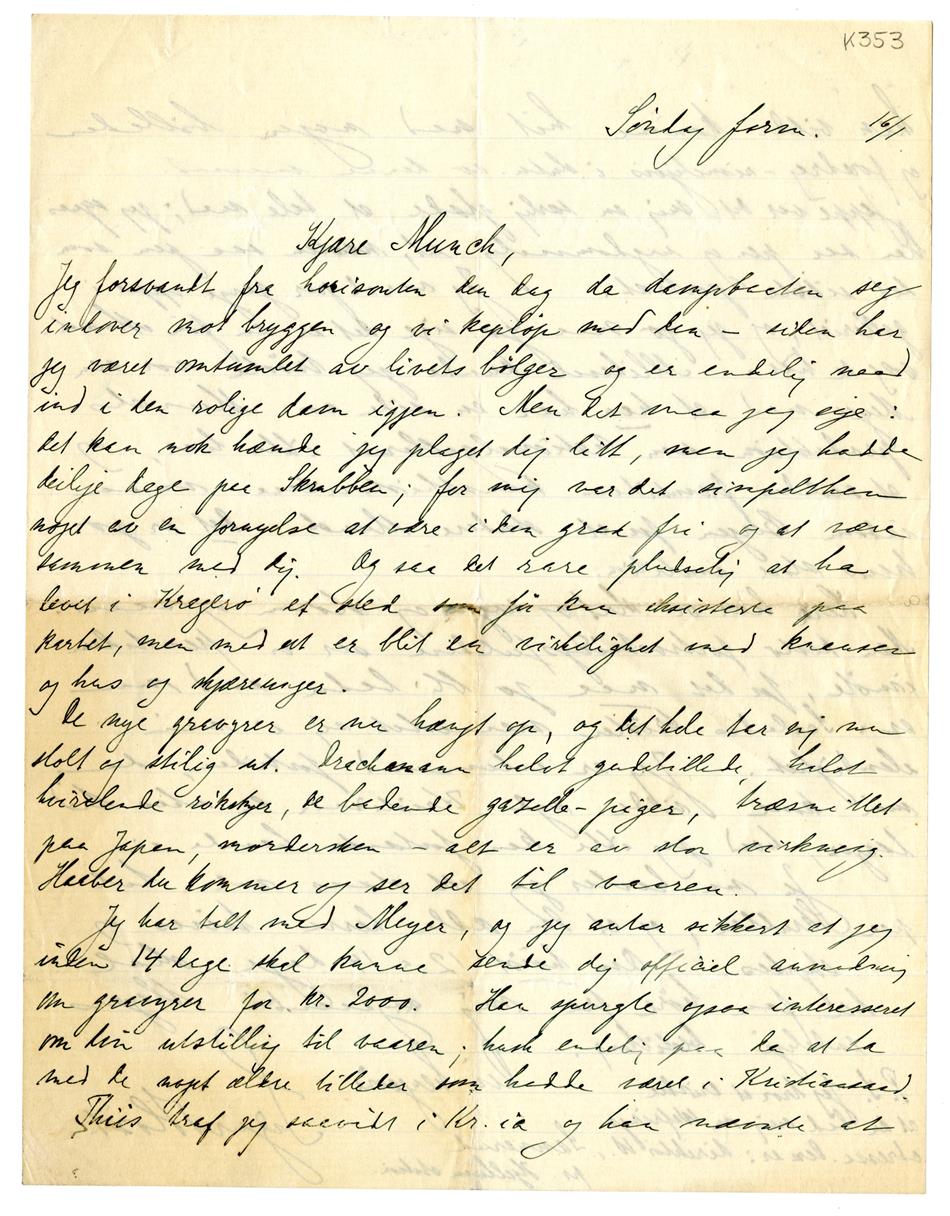 K353
Søndag form. 16/1
Kjære Munch,
Jeg forsvandt fra horisonten den dag da dampbaaten seg
indover mot bryggen og vi kapløp med den – siden har
jeg været omtumlet av livets bølger og er endelig naad
ind i den rolige dam igjen. Men det maa jeg sige:
det kan nok hænde jeg plaget dig litt, men jeg hadde
deilige dage paa Skrubben; for mig var det simpelthen
noget av en fornyelse at være i den grad fri og at være
sammen med dig. Og saa det rare pludselig at ha
levet i Kragerø et sted som før kun eksisterte paa
kartet, men med et er blit en virkelighet med knauser
og hus og skjæreninger.
De nye gravyrer er nu hængt op, og det hele tar sig nu
stolt og stilig ut. Drachmann halvt gudebillede, halvt
hvirvlende røkskyer, de badende gazelle-piger, træsnittet
paa Japan, mordersken – alt er av stor virkning.
Haaber du kommer og ser det til vaaren.
Jeg har talt med Meyer, og jeg antar sikkert at jeg
inden 14 dage skal kunne sende dig officiel anmodning
om gravyrer for kr. 2000. Han spurgte ogsaa interesseret
om din utstilling til vaaren; husk endelig paa da at ta
med de noget ældre billeder som hadde været i Kristiansand.
Thiis traf jeg saavidt i Kr.ia og han nævnte at